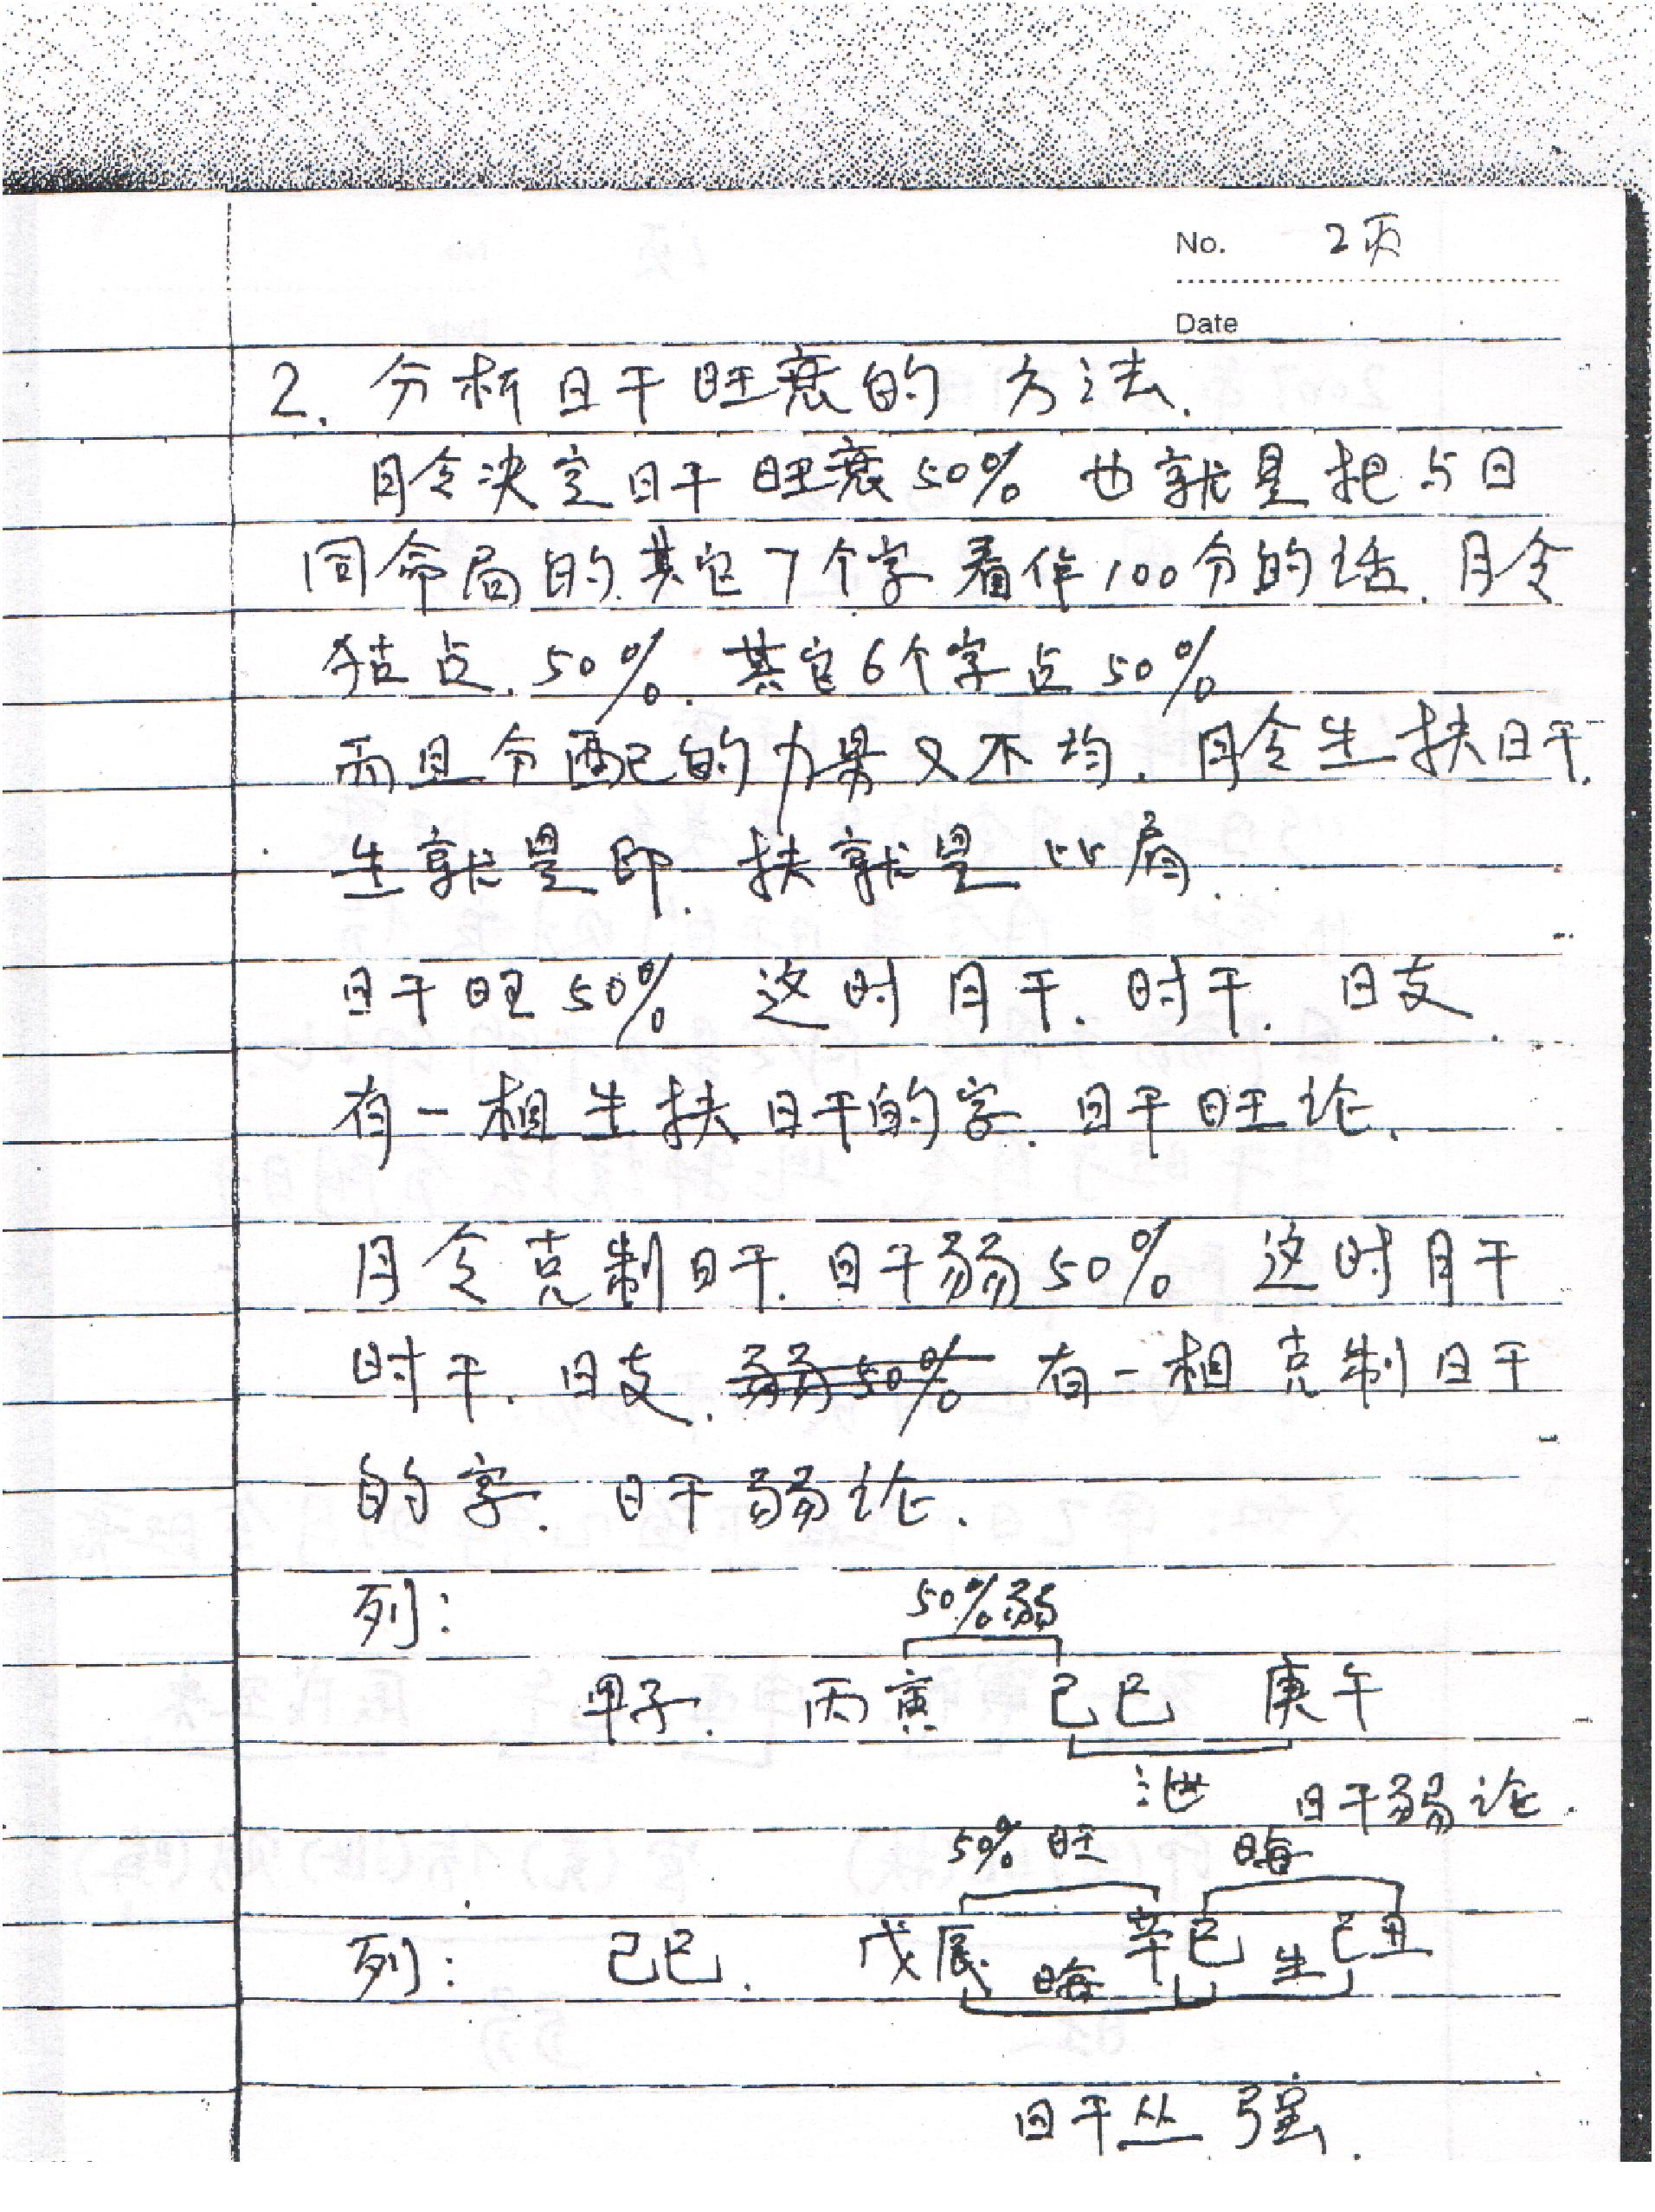 No. 2页
Date
2. 分析日干旺衰的方法.
月令决定日干旺衰50% 也就是把与日
同命局的其它7个字看作100分的话. 月令
独占.50%. 其它6个字占50%
而且分配的力量又不均. 月令生扶日干.
生就是印. 扶就是比肩.
日干旺50% 这时月干. 时干. 日支.
有一相生扶日干的字. 日干旺论.
月令克制日干. 日干弱50% 这时月干
时干. 日支. 弱50% 有一相克制日干
的字. 日干弱论.
列: 50%弱
甲子. 丙寅 己巳 庚午
泄 日干弱论.
50%旺 晦
列: 己巳. 戊辰 辛巳 己丑
晦 生
日干丛强.